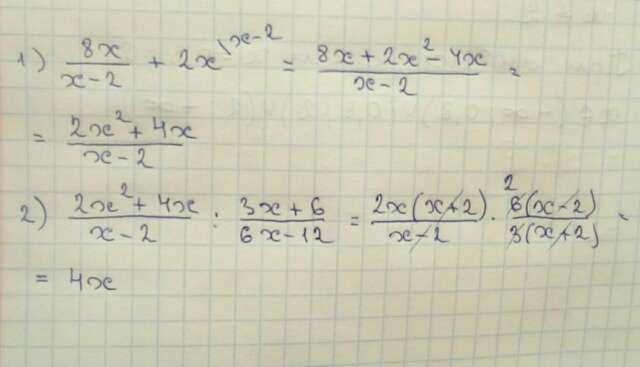 1) 8x/(x-2) + 2x \x-2 = (8x+2x²-4x)/(x-2) =
= (2x²+4x)/(x-2)
2) (2x²+4x)/(x-2) : (3x+6)/(6x-12) = 2x(x+2)/(x-2) · 2 6(x-2)/3(x+2) =
= 4x